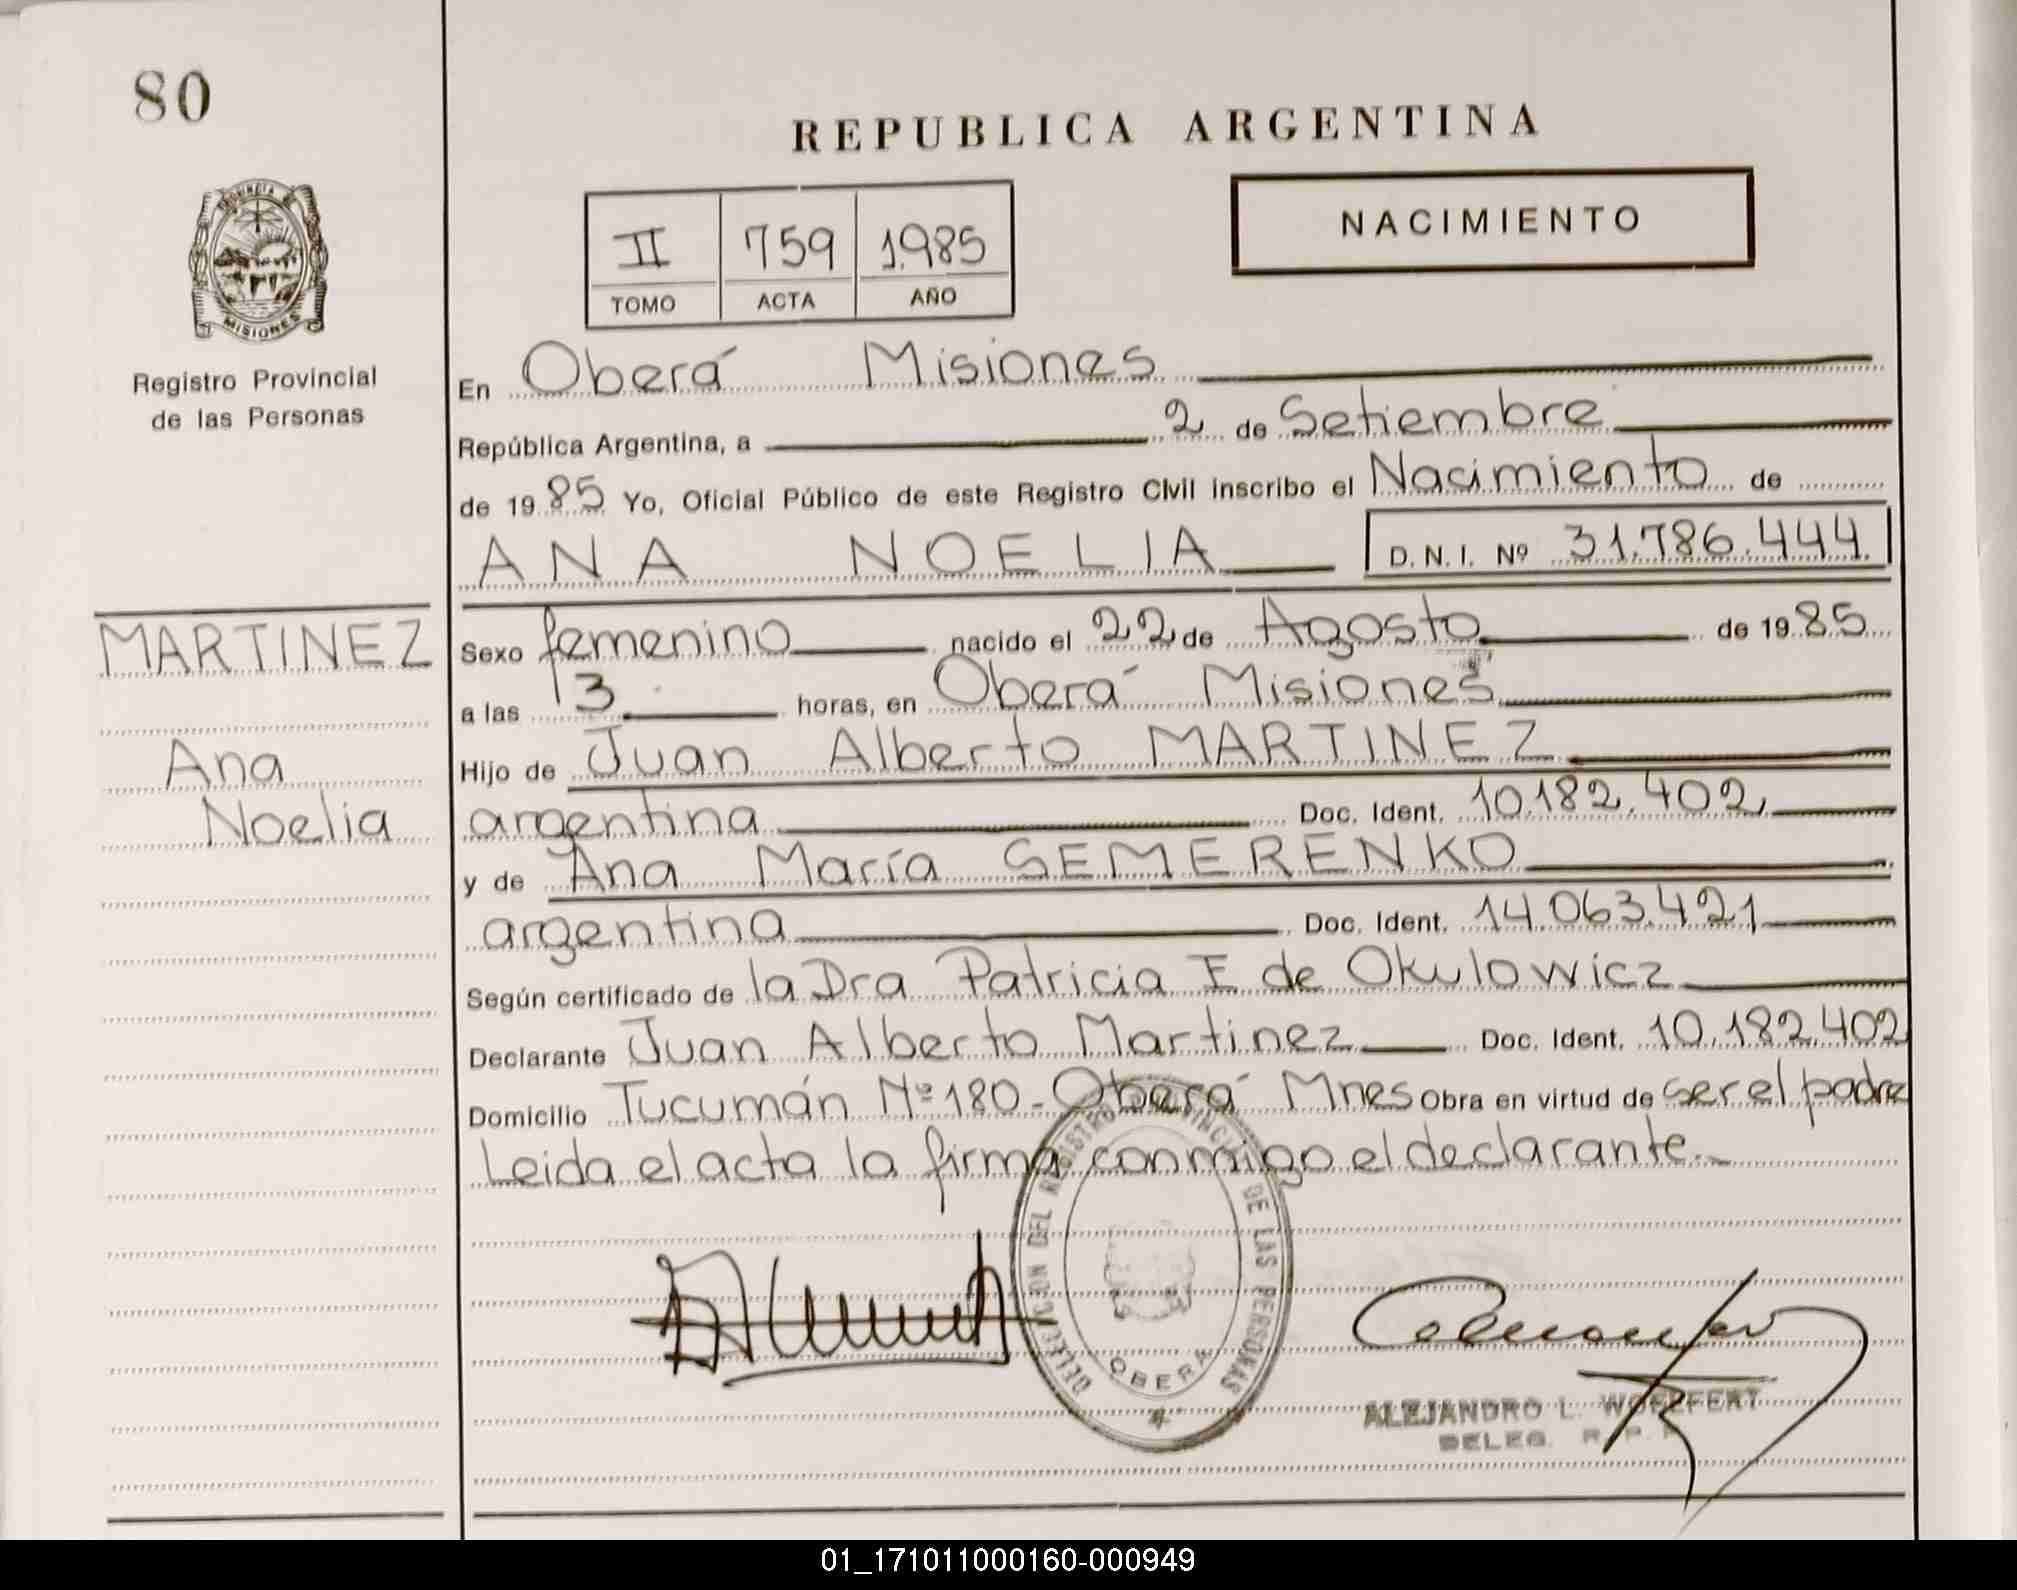 80
REPUBLICA ARGENTINA
NACIMIENTO
II 759 1.985
TOMO ACTA AÑO
PROVINCIA
MISIONES
Registro Provincial
de las Personas
En Oberá Misiones
República Argentina, a 2 de Setiembre
de 1985 Yo, Oficial Público de este Registro Civil inscribo el Nacimiento de
ANA NOELIA D.N.I. Nº 31.786.444
MARTINEZ
Ana
Noelia
Sexo femenino nacido el 22 de Agosto de 1985
a las 13 horas, en Oberá Misiones
Hijo de Juan Alberto MARTINEZ
argentina Doc. Ident. 10.182.402
y de Ana María SEMERENKO
argentina Doc. Ident. 14.063.421
Según certificado de la Dra Patricia I de Okulowicz
Declarante Juan Alberto Martinez Doc. Ident. 10.182.402
Domicilio Tucumán Nº 180 - Oberá Mnes Obra en virtud de ser el padre
Leida el acta la firma conmigo el declarante.-
DELEGACION DEL REGISTRO PROVINCIAL DE LAS PERSONAS
OBERA
ALEJANDRO L. WOELFERT
DELEG. R.P.P.
01_171011000160-000949